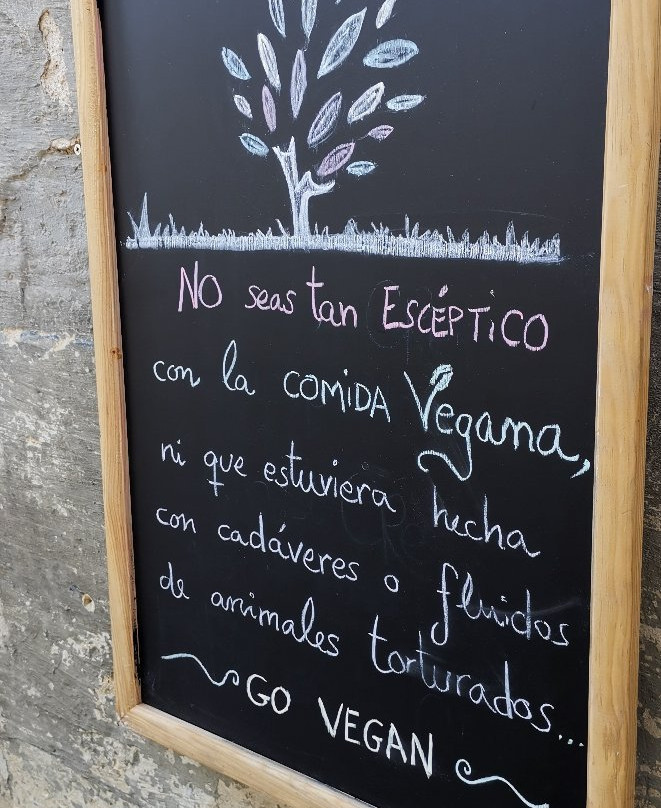 NO seas tan ESCÉPTiCO
con la COMiDA Vegana,
ni que estuviera hecha
con cadáveres o fluidos
de animales torturados...
GO VEGAN